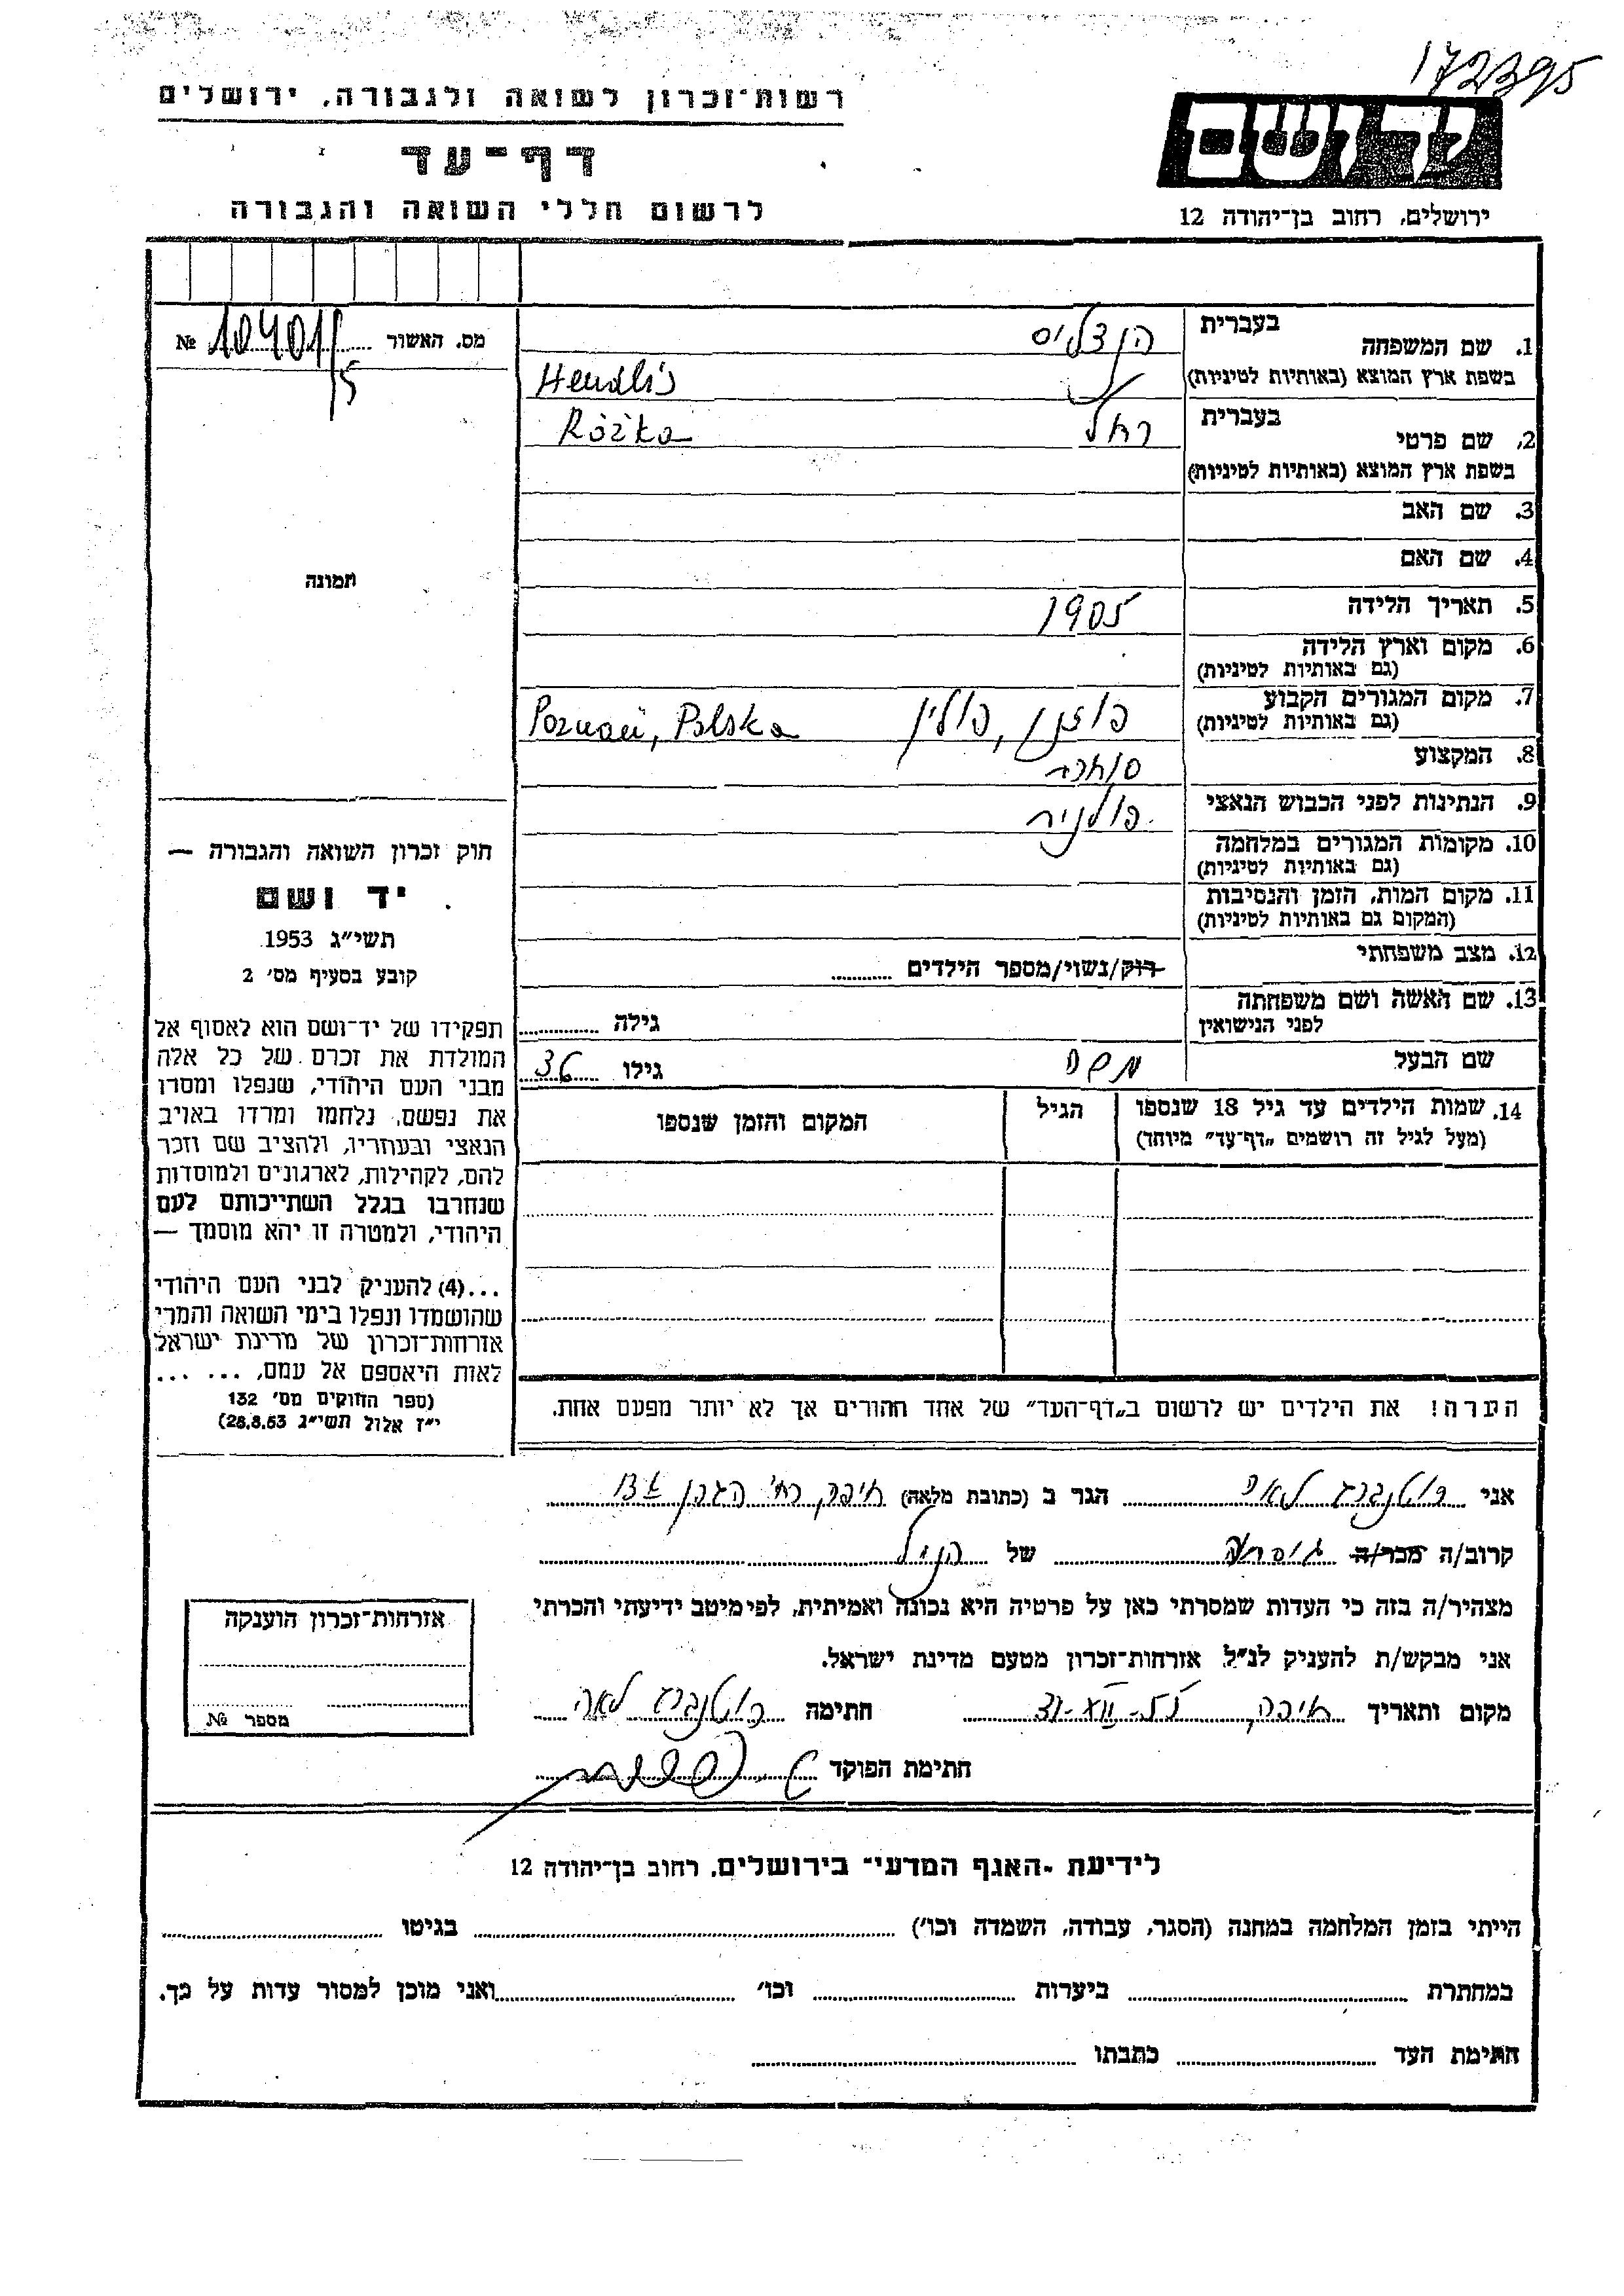 172395
רשות־זכרון לשואה ולגבורה, ירושלים
יד ושם
דף־עד
לרשום חללי השואה והגבורה
ירושלים, רחוב בן־יהודה 12
מס. האשור 10401/5 №
1. שם המשפחה בעברית הנדליס
בשפת ארץ המוצא (באותיות לטיניות) Hendlis
2. שם פרטי בעברית רחל Różka
בשפת ארץ המוצא (באותיות לטיניות)
3. שם האב
4. שם האם
תמונה
5. תאריך הלידה 1905
6. מקום וארץ הלידה
(גם באותיות לטיניות)
7. מקום המגורים הקבוע פוזנן, פולין Poznań, Polska
(גם באותיות לטיניות)
8. המקצוע סוחר
9. הנתינות לפני הכבוש הנאצי פולנית
10. מקומות המגורים במלחמה
(גם באותיות לטיניות)
11. מקום המות, הזמן והנסיבות
(המקום גם באותיות לטיניות)
12. מצב משפחתי רוק/נשוי/מספר הילדים
13. שם האשה ושם משפחתה
לפני הנישואין גילה
שם הבעל משה גילו 36
14. שמות הילדים עד גיל 18 שנספו הגיל המקום והזמן שנספו
(מעל לגיל זה רושמים „דף־עד״ מיוחד)
חוק זכרון השואה והגבורה —
יד ושם
תשי״ג 1953
קובע בסעיף מס׳ 2
תפקידו של יד־ושם הוא לאסוף אל
המולדת את זכרם של כל אלה
מבני העם היהודי, שנפלו ומסרו
את נפשם, נלחמו ומרדו באויב
הנאצי ובעוזריו, ולהציב שם וזכר
להם, לקהילות, לארגונים ולמוסדות
שנחרבו בגלל השתייכותם לעם
היהודי, ולמטרה זו יהא מוסמך —
...(4) להעניק לבני העם היהודי
שהושמדו ונפלו בימי השואה והמרי
אזרחות־זכרון של מדינת ישראל
לאות היאספם אל עמם, ... ...
(ספר החוקים מס׳ 132
י״ז אלול תשי״ג 28.8.53)
הערה! את הילדים יש לרשום ב„דף־העד״ של אחד ההורים אך לא יותר מפעם אחת.
אני רוטנברג לאה הגר ב (כתובת מלאה) חיפה רח׳ הגפן
קרוב/ה מכר/ה של הנ״ל
מצהיר/ה בזה כי העדות שמסרתי כאן על פרטיה היא נכונה ואמיתית, לפי מיטב ידיעתי והכרתי
אני מבקש/ת להעניק לנ״ל אזרחות־זכרון מטעם מדינת ישראל.
מקום ותאריך חיפה, חתימה רוטנברג לאה
חתימת הפוקד
אזרחות־זכרון הוענקה
מספר №
לידיעת ״האגף המדעי״ בירושלים, רחוב בן־יהודה 12
הייתי בזמן המלחמה במחנה (הסגר, עבודה, השמדה וכו׳) בגיטו
במחתרת ביערות וכו׳ ואני מוכן למסור עדות על כך.
חתימת העד כתבתו